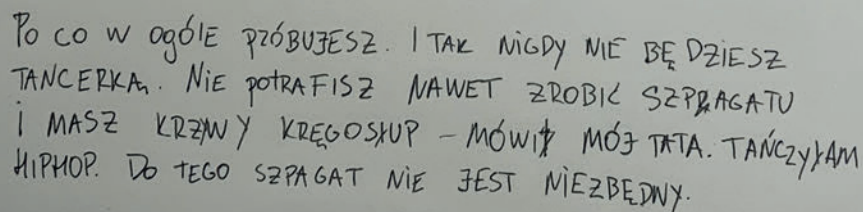 Po co w ogóle próbujesz. I tak nigdy nie będziesz
tancerką. Nie potrafisz nawet zrobić szpagatu
i masz krzywy kręgosłup – mówił mój tata. Tańczyłam
hiphop. Do tego szpagat nie jest niezbędny.